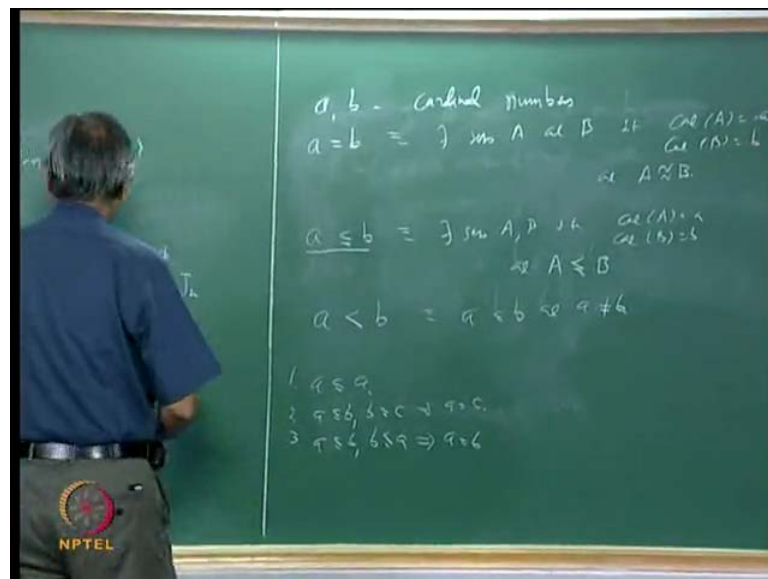 a, b - cardinal numbers
a = b ≡ ∃ sets A and B st card(A) = a
card(B) = b
and A ≈ B.
a ≤ b ≡ ∃ sets A, B st card(A) = a
card(B) = b
and A ≤ B
a < b ≡ a ≤ b and a ≠ b
1. a ≤ a.
2. a ≤ b, b ≤ c ⇒ a ≤ c.
3 a ≤ b, b ≤ a ⇒ a = b
NPTEL